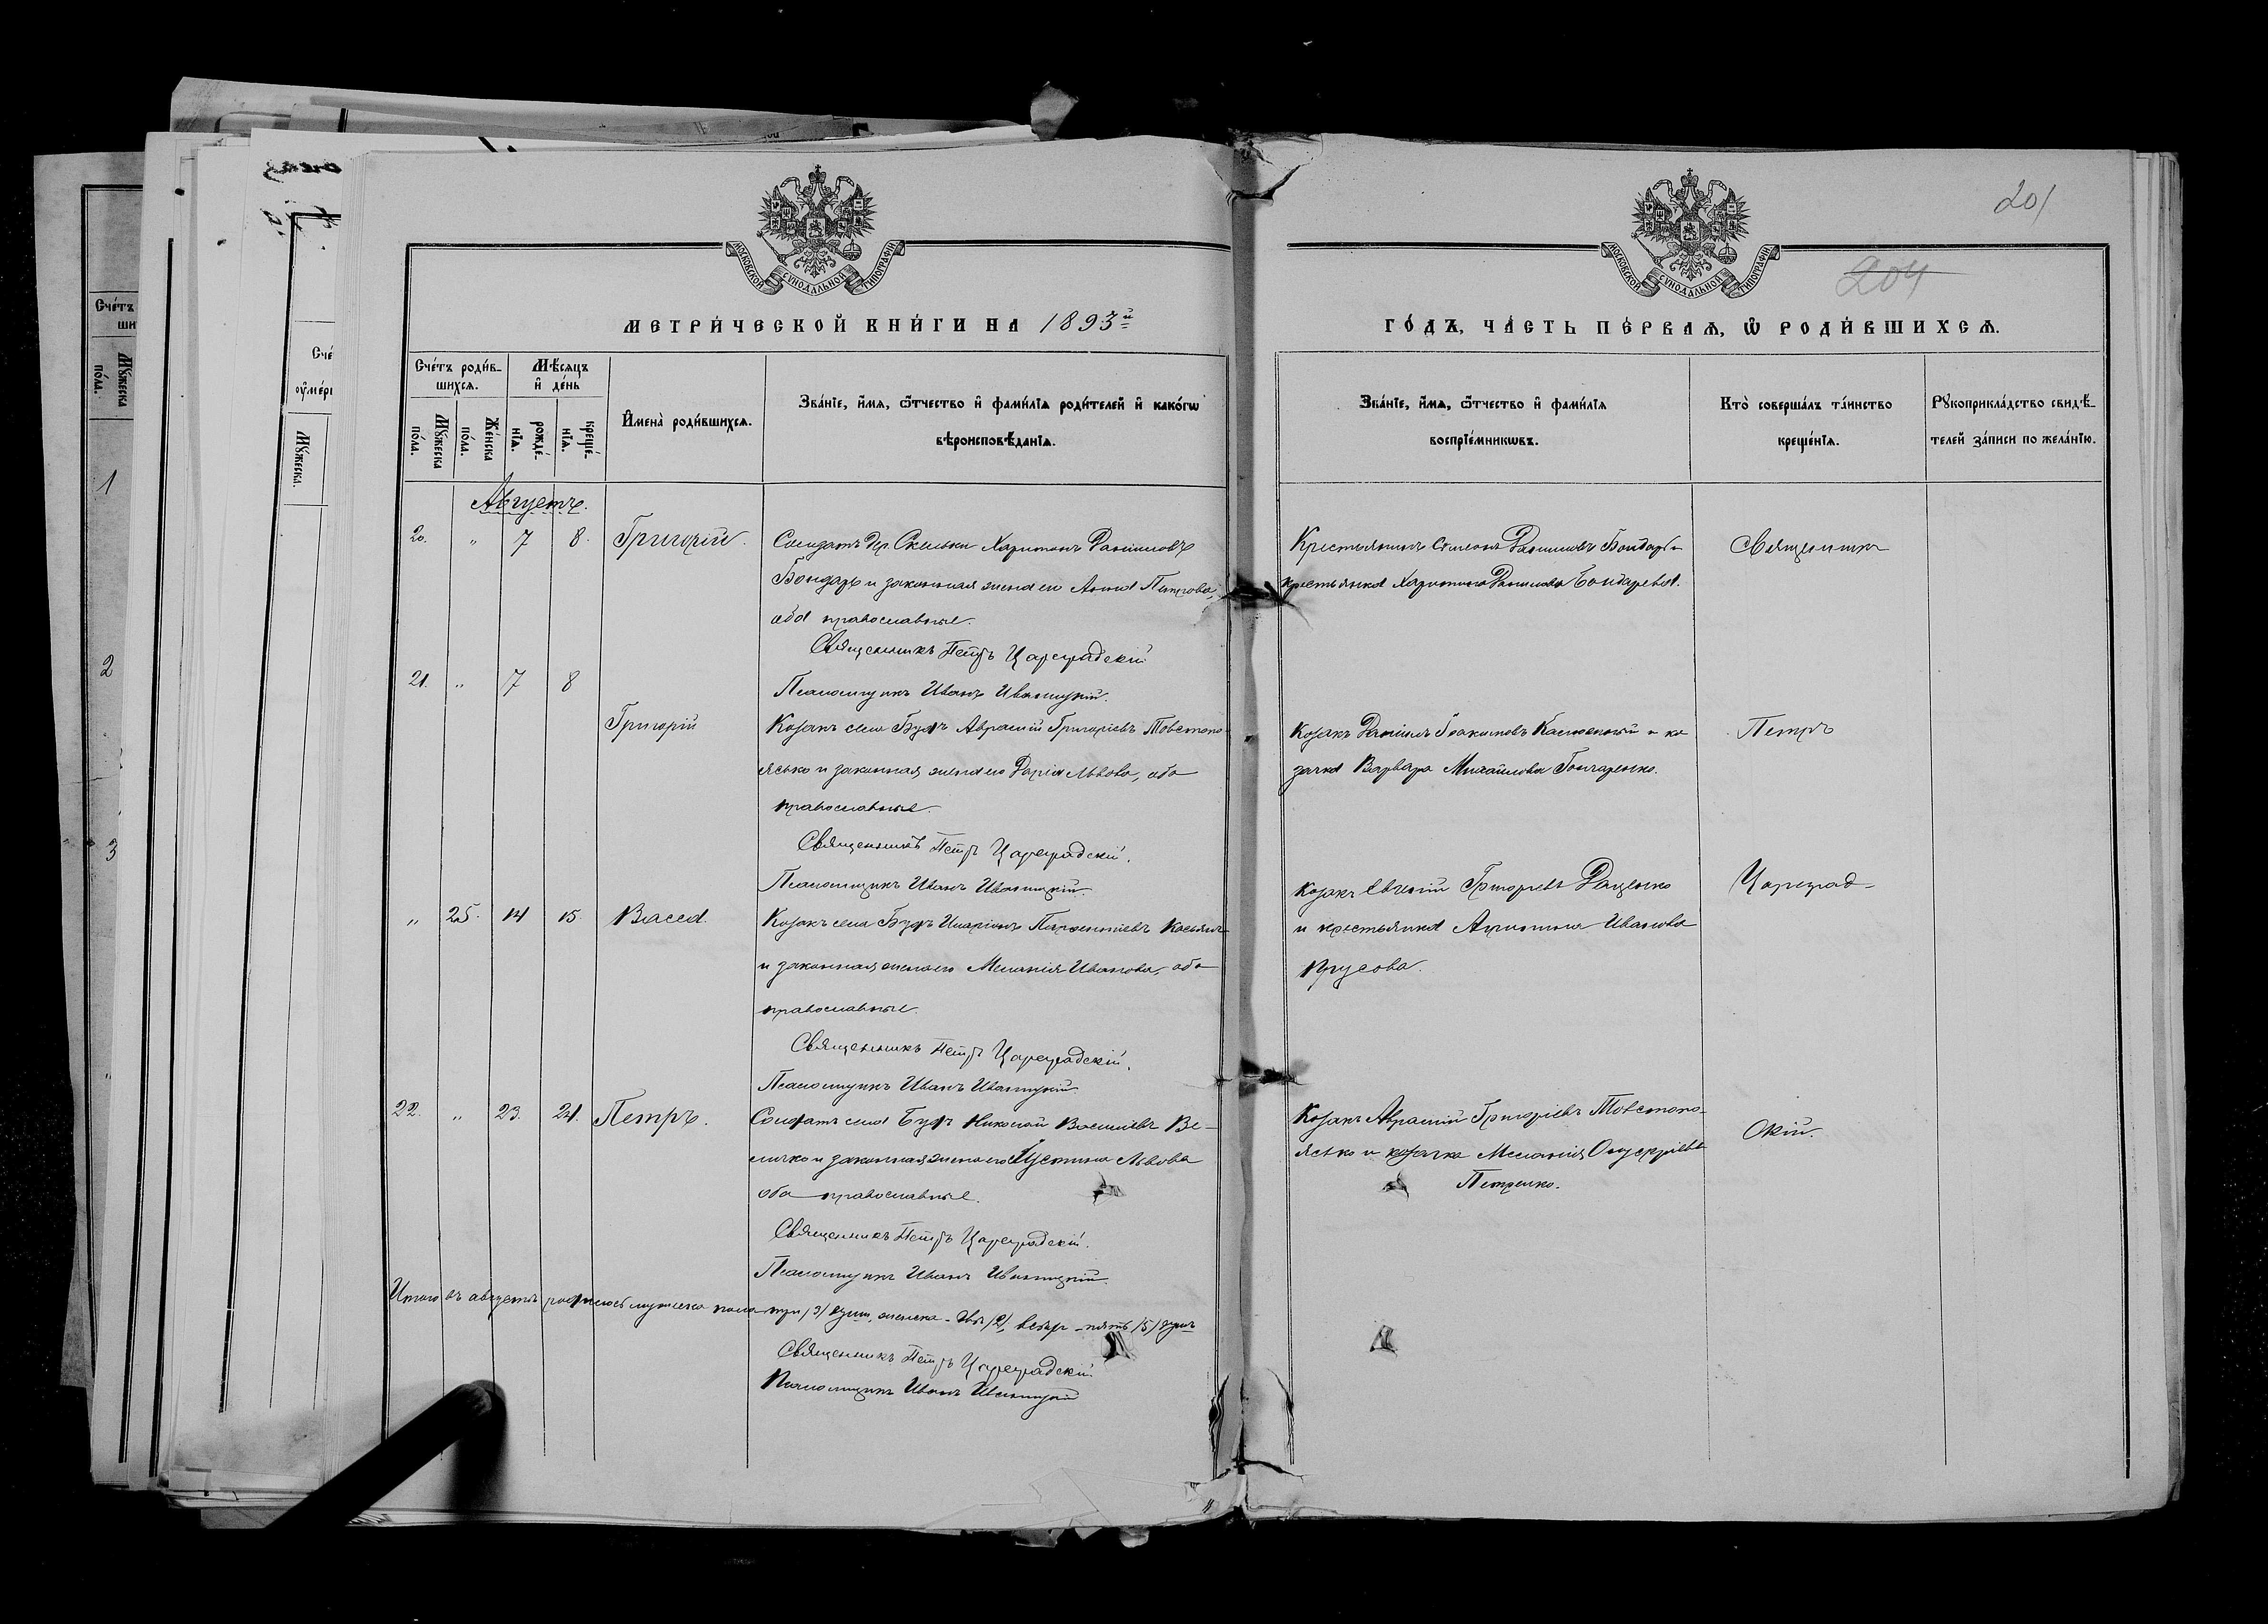 201
204
МОСКОВСКОЙ СѴНОДАЛЬНОЙ ТИПОГРАФІИ
МОСКОВСКОЙ СѴНОДАЛЬНОЙ ТИПОГРАФІИ
МЕТРИ́ЧЕСКОЙ КНИ́ГИ НА 1893й
ГО́ДЪ, ЧА́СТЬ ПЕ́РВАѦ, Ѽ РОДИ́ВШИХСѦ.
Сче́тъ роди́в-
шихсѧ.
Мѣ́сяцъ
и҆ де́нь
Мꙋ́жеска по́ла.
Же́нска по́ла.
рожде́-нїѧ.
креще́-нїѧ.
И҆мена̀ роди́вшихсѧ.
Зва́нїе, и҆́мѧ, ѻ҆́тчество и҆ фами́лїѧ роди́телей и҆ како́гѡ
вѣроисповѣ́данїѧ.
Зва́нїе, и҆́мѧ, ѻ҆́тчество и҆ фами́лїѧ
воспрїе́мникѡвъ.
Кто̀ соверша́лъ та́инство
креще́нїѧ.
Рꙋкоприкла́дство свидѣ́-
телей за́писи по жела́нїю.
Августъ.
20. " 7 8. Григорій.
Солдатъ дер. Скельки Харитонъ Даниловъ
Бондарь и законная жена его Анна Петрова,
оба православные.
Священникъ Петръ Цареградскій
Псаломщикъ Иванъ Иваницкій.
Крестьянинъ Симеонъ Даниловъ Бондарь и
крестьянка Харитина Данилова Бондарева.
Священникъ
21. " 7 8
Григорій
Козакъ села Будъ Аврамій Григоріевъ Товстопо-
ясько и законная жена его Дарія Львова, оба
православные.
Священникъ Петръ Цареградскій.
Псаломщикъ Иванъ Иваницкій.
Козакъ Даніилъ Іоакимовъ и ко
зачка Варвара Михайлова Гончаренко.
Петръ
" 25. 14 15. Васса.
Козакъ села Будъ Иларіонъ Парѳеніевъ Касьянъ
и законная жена его Меланія Иванова, оба
православные.
Священникъ Петръ Цареградскій.
Псаломщикъ Иванъ Иваницкій
Козакъ Евгеній Григорьевъ Даценко
и крестьянка Иванова
Прусова.
Цареград-
22. " 23. 24. Петръ.
Солдатъ села Будъ Николай Васильевъ Ве-
личко и законная жена его Іустина Львова
оба православные.
Священникъ Петръ Цареградскій.
Псаломщикъ Иванъ Иваницкій
Козакъ Аврамій Григоріевъ Товстопо-
ясько и козачка Меланія Онуфріева
Петренко.
скій.
Итого въ августѣ родилось мужеска пола три /3/ душ, женска - двѣ /2/, всѣхъ - пять /5/ душъ
Священникъ Петръ Цареградскій
Псаломщикъ Иванъ Иваницкій
Сче́тъ
ши
Мꙋ́жеска
по́ла.
1
2
3
Сче́
ᲂу҆ме́рш
Мꙋ́жеска.